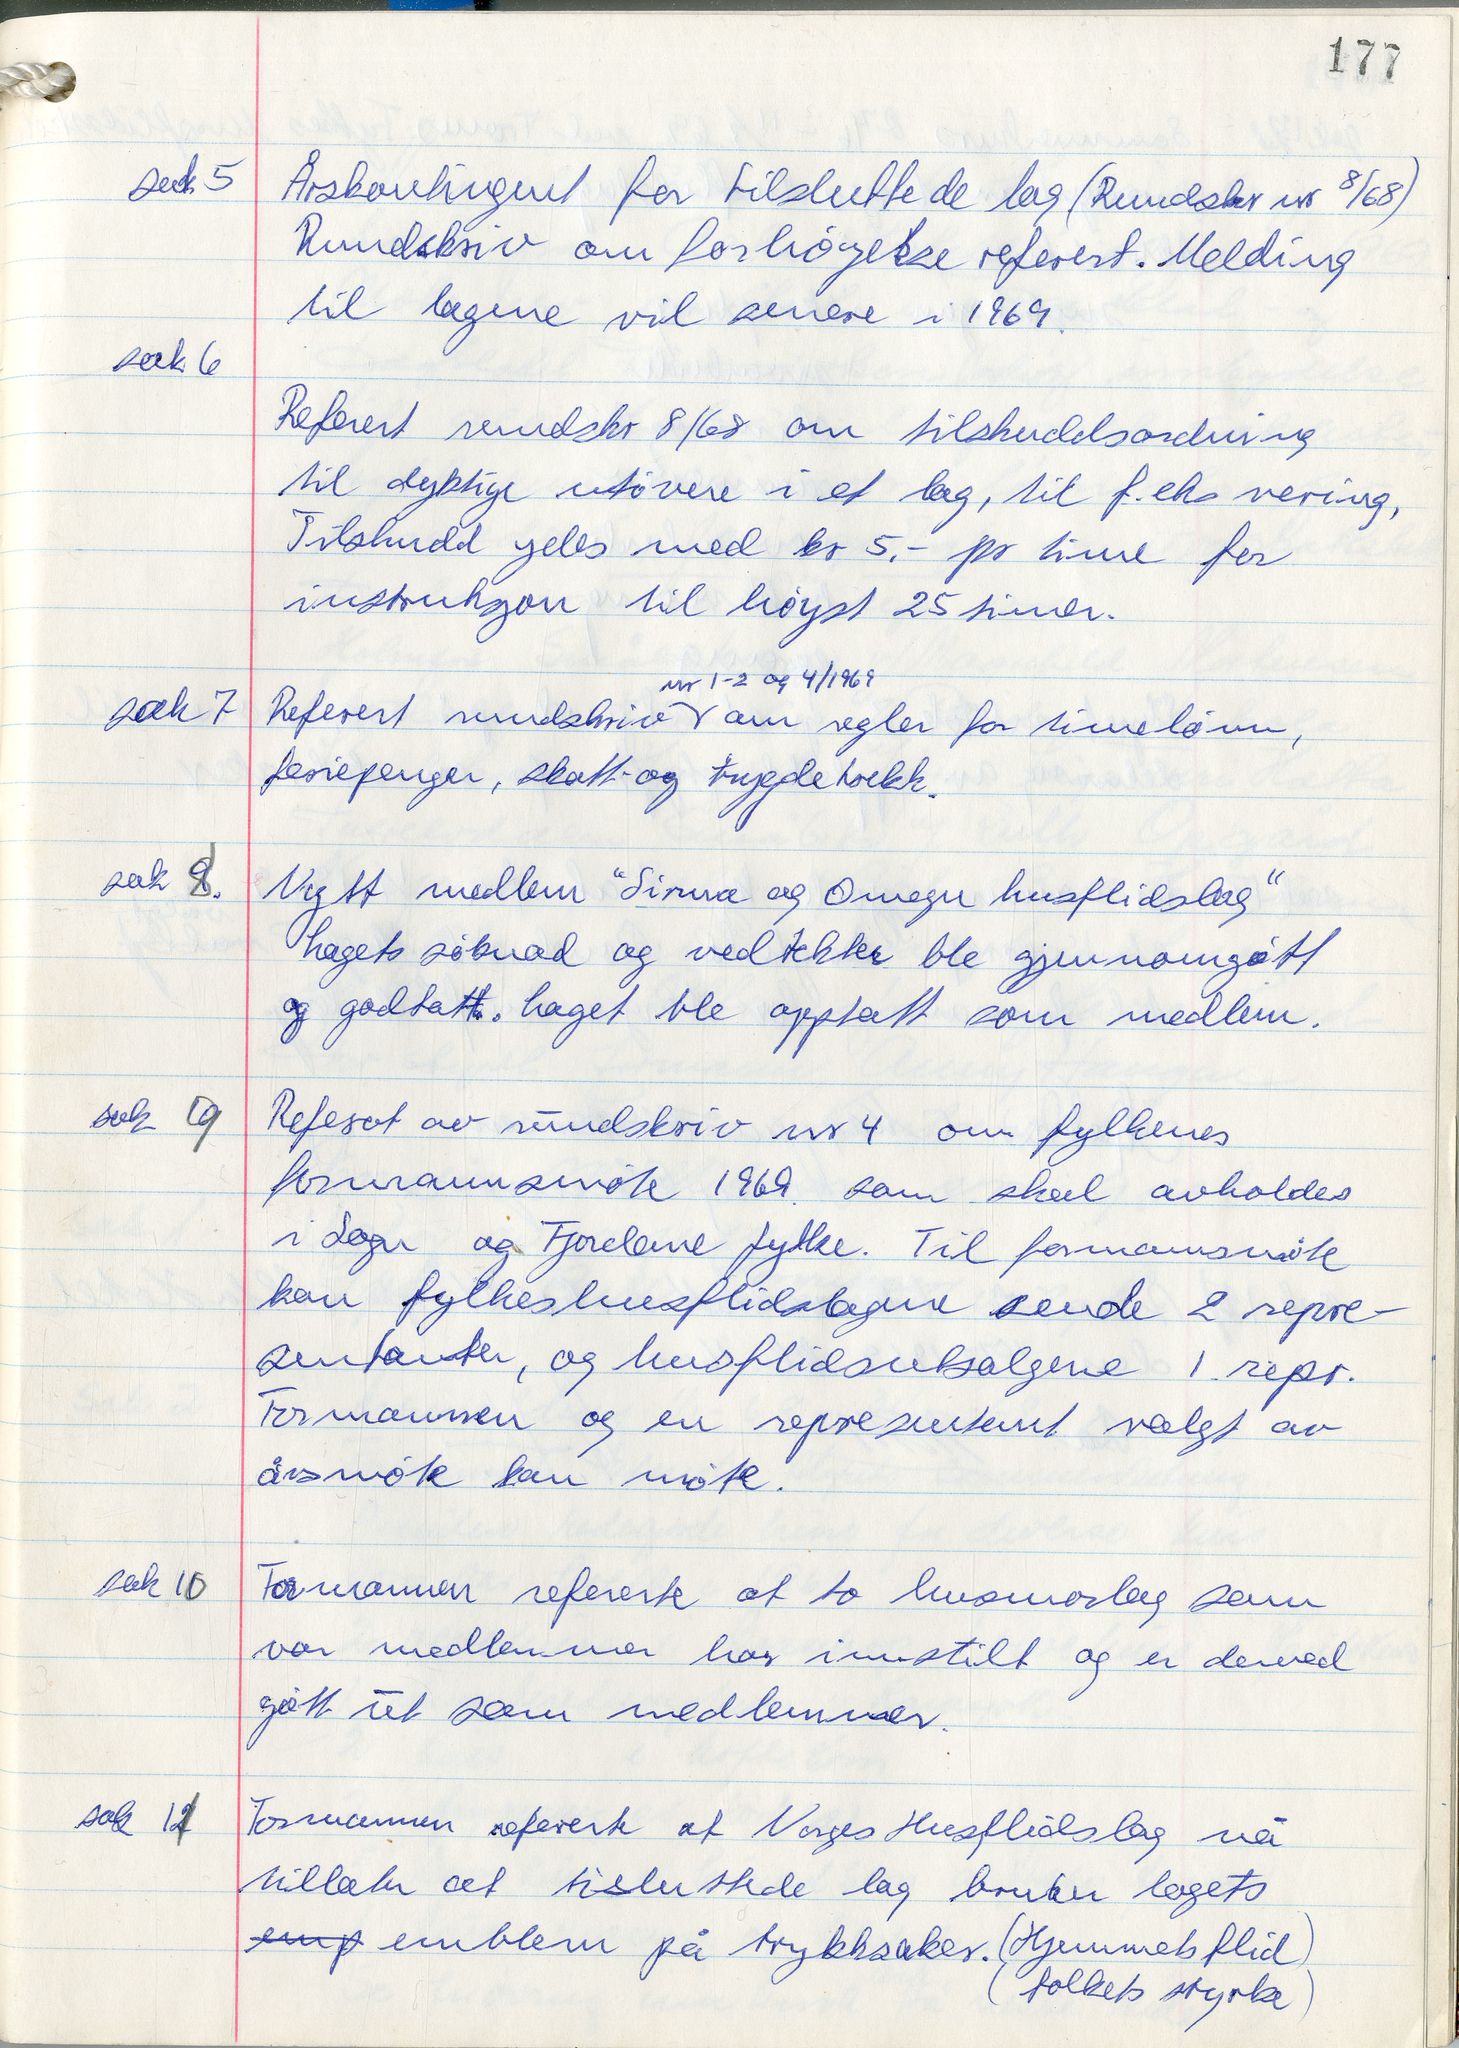 177
sak 5 Årskontingent for tilsluttede lag (Rundskr nr 8/68)
Rundskriv om forhöyelse referert. Melding
til lagene vil senere i 1969.
sak 6
Referert rundskr 8/68 om tilskuddsordning
til dyktige utövere i et lag, til f.eks veving,
Tilskudd ydes med kr 5,- pr time for
instruksjon til höyst 25 timer.
nr 1-2 og 4/1969
sak 7 Referert rundskriv om regler for timelönn,
feriepenger, skatt- og trygdetrekk.
sak 8. Nytt medlem "Sirma og Omegn husflidslag"
Lagets söknad og vedtekter ble gjennomgått
og godtatt. Laget ble opptatt som medlem.
sak 9 Referat av rundskriv nr 4 om fylkenes
formannsmöte 1969 som skal avholdes
i Sogn og Fjordane fylke. Til formannsmöte
kan fylkeshusflidslagene sende 2 repre-
sentanter, og husflidsutsalgene 1 repr.
Formannen og en representant valgt av
årsmöte kan möte.
sak 10 Formannen refererte at to husmorlag som
var medlemmer har innstilt og er derved
gått ut som medlemmer.
sak 11 Formannen refererte at Norges Husflidslag nå
tillater at tilsluttede lag bruker lagets
emp emblem på trykksaker. (Hjemmets flid)
(folkets styrke)